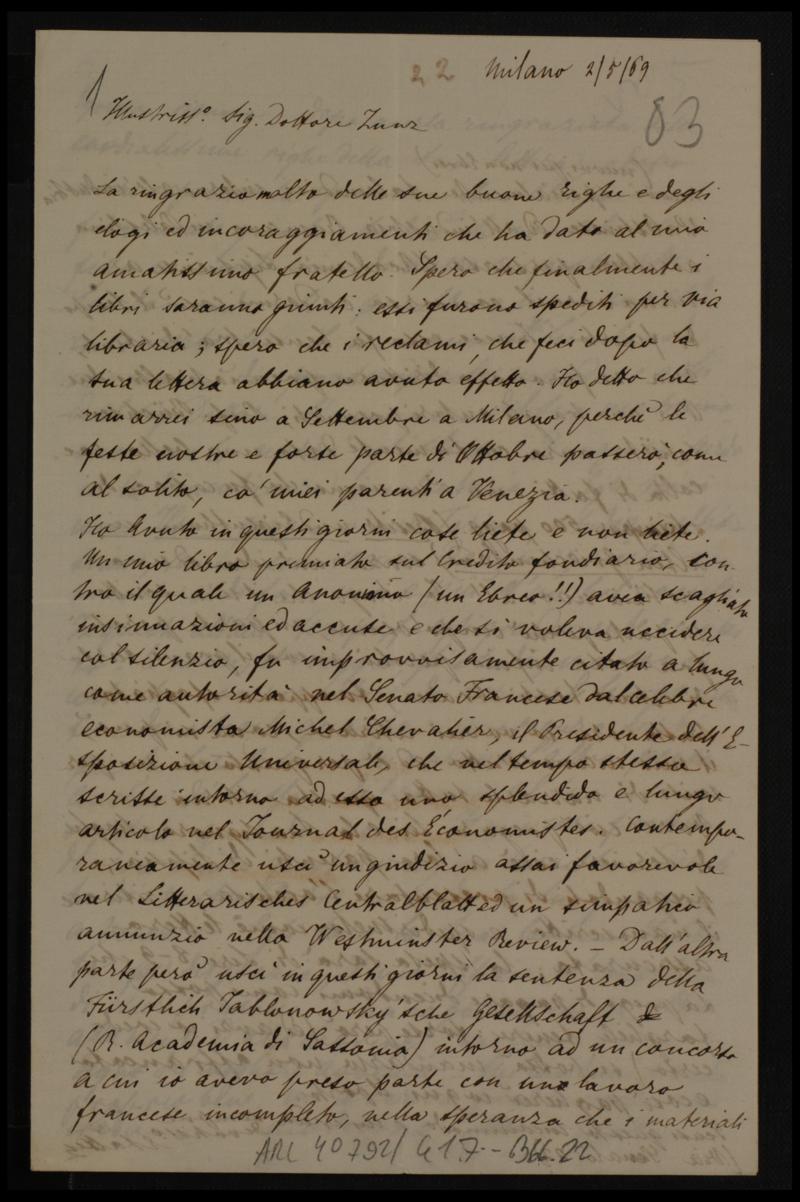 22 Milano 2/5/69
83
Illustriss.o Sig. Dottore Zunz
La ringrazio molto delle sue buone righe e degli
elogi ed incoraggiamenti che ha dato al mio
amatissimo fratello. Spero che finalmente i
libri saranno giunti: essi furono spediti per via
libraria; spero che i reclami, che feci dopo la
sua lettera abbiano avuto effetto. Ho detto che
rimarrei sino a Settembre a Milano, perchè le
feste nostre e forse parte di Ottobre passerò, come
al solito, co' miei parenti a Venezia.
Ho avuto in questi giorni cose liete e non liete.
Un mio libro premiato sul Credito fondiario, con-
tro il quale un Anonimo (un Ebreo!!) avea scagliato
insinuazioni ed accuse e che si voleva uccidere
col silenzio, fu improvvisamente citato a lungo
come autorità nel Senato Francese dal celebre
economista Michel Chevalier, il Presidente dell'E-
sposizione Universale, che nel tempo stesso
scrisse intorno ad esso uno splendido e lungo
articolo nel Journal des Économistes. Contempo-
raneamente uscì un giudizio assai favorevole
nel Litterarisches Centralblatt ed un simpatico
annunzio nella Westminster Review. – Dall'altra
parte però uscì in questi giorni la sentenza della
Fürstlich Jablonowsky'sche Gesellschaft
(R. Academia di Sassonia) intorno ad un concorso
a cui io avevo preso parte con uno lavoro
francese incompleto, nella speranza che i materiali
ARC 4° 792/ G17 - 366.22